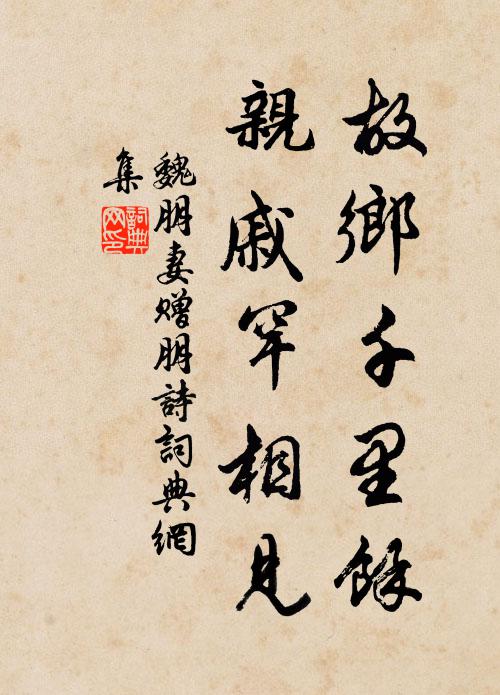 故鄉千里餘
親戚罕相見
魏朋妻贈朋詩詞典網
集
詞典
网印